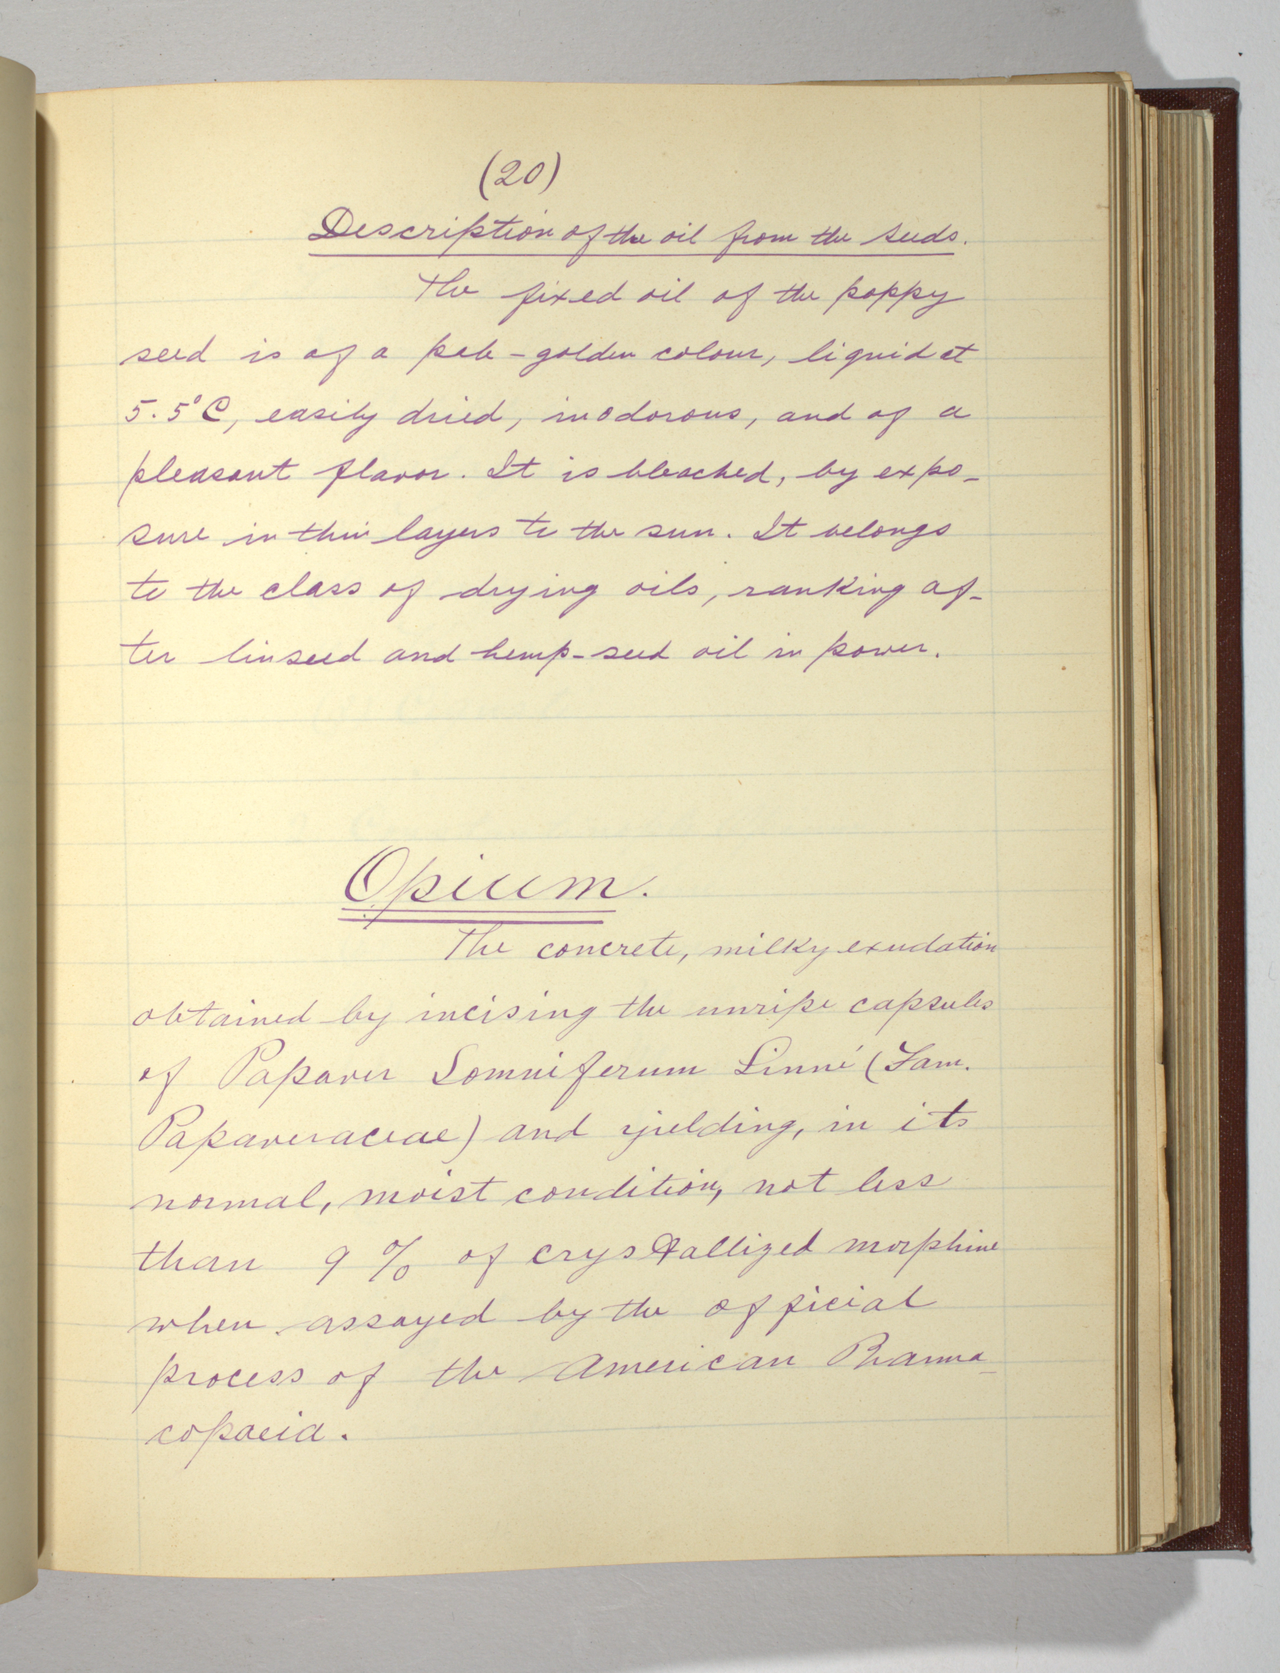 (20)
Description of the oil from the seeds.
The fixed oil of the poppy
seed is of a pale-golden colour, liquid at
5.5°C, easily dried, inodorous, and of a
pleasant flavor. It is bleached, by expo-
sure in thin layers to the sun. It belongs
to the class of drying oils, ranking af-
ter linseed and hemp-seed oil in power.
Opium.
The concrete, milky exudation
obtained by incising the unripe capsules
of Papaver Somniferum Linné (Fam.
Papaveraceae) and yielding, in its
normal, moist condition, not less
than 9% of crystallized morphine
when assayed by the official
process of the American Pharma-
copaeia.